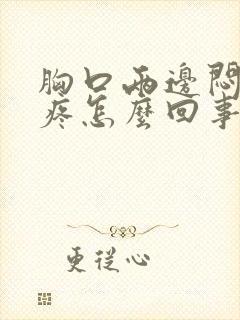 胸口兩邊悶
疼怎麼回事
更從心